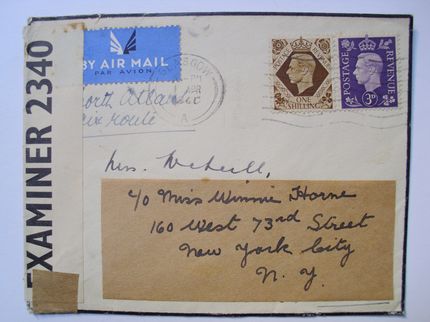 EXAMINER 2340
BY AIR MAIL
PAR AVION
North Atlantic
air route
GLASGOW
PM
APR
A
POSTAGE REVENUE
ONE
SHILLING
POSTAGE
REVENUE
3D
Mrs.
c/o Miss Winnie Horne
160 West 73rd Street
New York City
N. Y.